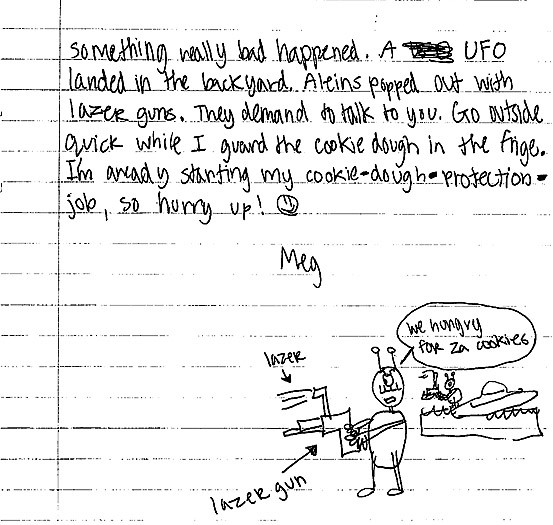 something really bad happened. A UFO
landed in the backyard. Aleins popped out with
lazer guns. They demand to talk to you. Go outside
quick while I guard the cookie dough in the frige.
I'm aready starting my cookie-dough-protection-
job, so hurry up! ☺
Meg
we hungry
for za cookies
lazer
lazer gun